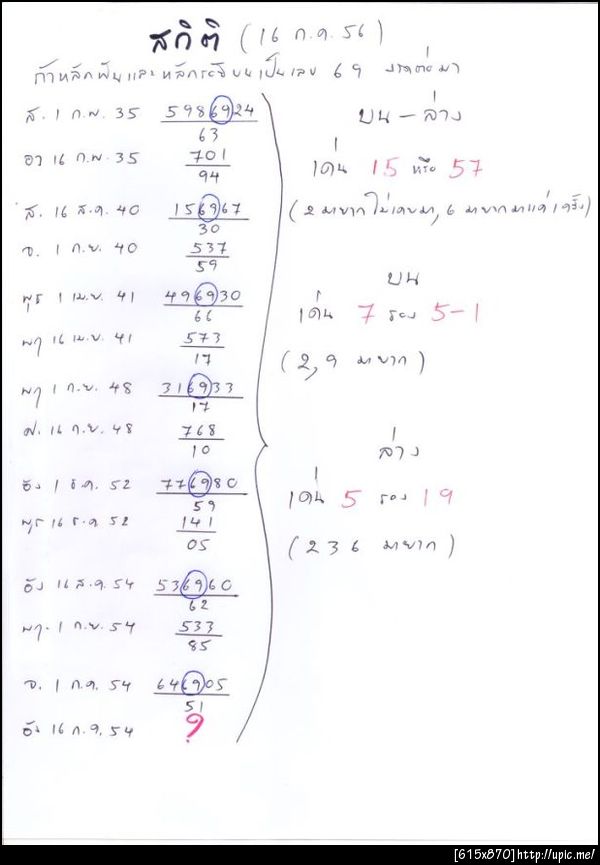 สถิติ (16 ก.ค. 56)
ถ้าหลักพันและหลักร้อยบนเป็นเลข 69 งวดต่อมา
ส. 1 ก.พ. 35 5986924
63
อา 16 ก.พ. 35 701
94
ส. 16 ส.ค. 40 156967
30
จ. 1 ก.ย. 40 537
59
พุธ 1 เม.ย. 41 496930
66
พฤ 16 เม.ย. 41 573
17
พฤ 1 ก.ย. 48 316933
17
ศ. 16 ก.ย. 48 768
10
อัง 1 ธ.ค. 52 776980
59
พุธ 16 ธ.ค 52 141
05
อัง 16 ส.ค. 54 536960
62
พฤ. 1 ก.ย. 54 533
85
จ. 1 ก.ค. 54 646905
51
อัง 16 ก.ค. 54 ?
บน - ล่าง
เด่น 15 หรือ 57
(2 มายากไม่เคยมา, 6 มายากมาแค่ 1 ครั้ง)
บน
เด่น 7 รอง 5-1
(2, 9 มายาก)
ล่าง
เด่น 5 รอง 19
(2 3 6 มายาก)
[615x870]http://upic.me/